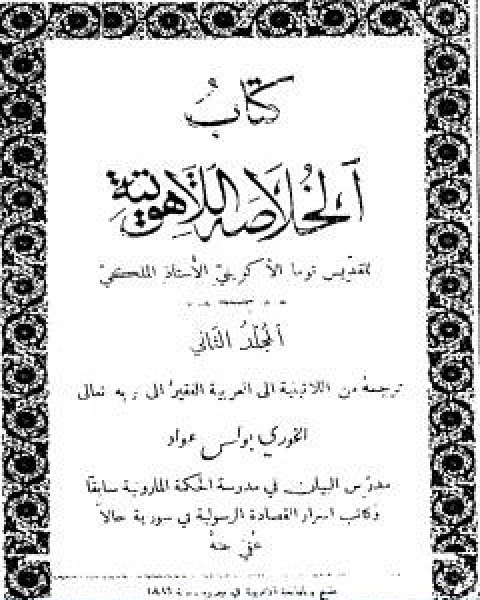 كتاب
الخلاصة اللاهوتية
للقديس توما الاكوينيّ الأستاذ الملكيّ
المجلد الثاني
ترجمهُ من اللاتينية الى العربية الفقير الى ربه تعالى
الخوري بولس عواد
مدرّس البيان في مدرسة الحكمة المارونية سابقًا
وكاتب اسرار القصادة الرسولية في سورية حالًا
عُفي عنهُ
طبع بالمطبعة الادبية في بيروت سنة